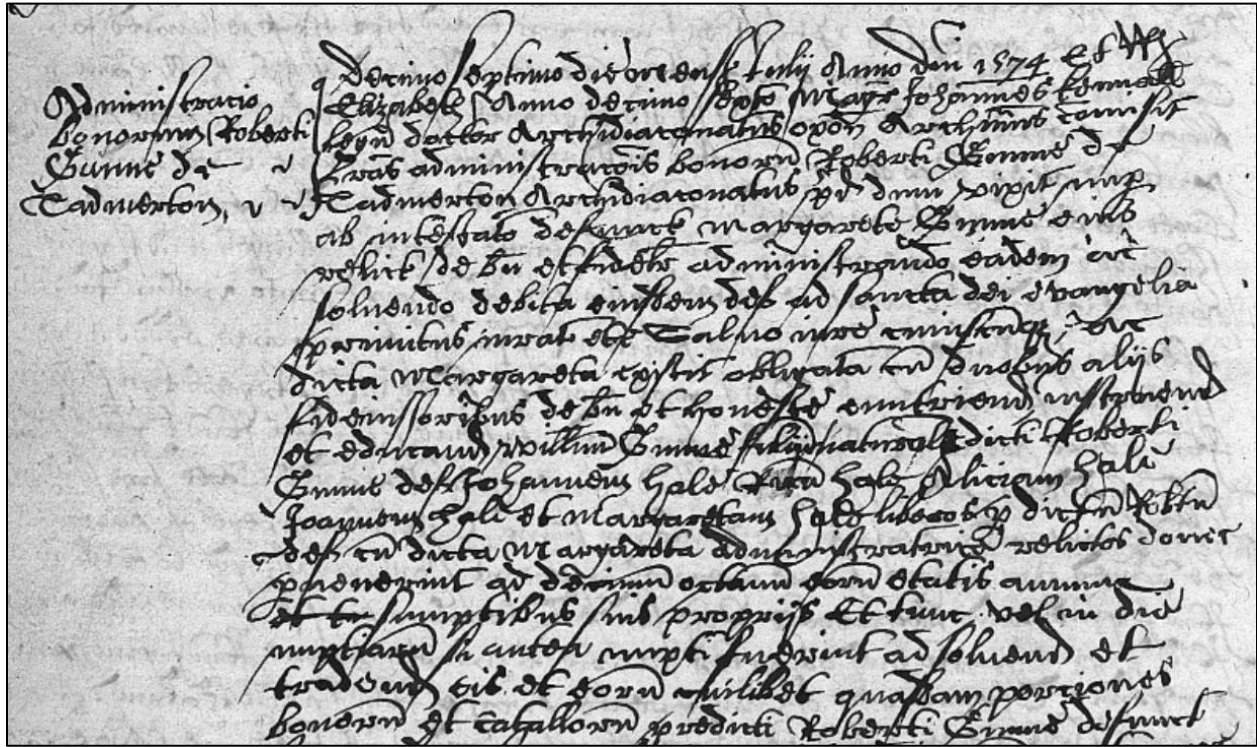 Administracio
bonorum Roberti
Gunne de
Tadmerton
Decimo septimo die mensis Julij Anno dni 1574 Et
Elizabeth Anno decimo sexto Magr Johannes Kennall
legu doctor Archidiaconatus Oxon Archinus comisit
lras administracois bonoru Roberti Gunne de
Tadmerton Archidiaconatus pd dum vixit nup
ab intestato defunct Margarete Gunne eius
relict de bn et fidelr administrando eadem ac
solvendo debita eiusdem def ad sancta dei evangelia
primitus iurat etc Salvo iure cuiuscuq ac
dicta Margareta existit obligata cu duobus alijs
fideiussoribus de bn et honeste enutriend instruend
et educand Willmu Gunne filiu naturale dicti Roberti
Gunne def Johannem Hale Ricu Hale Aliciam Hale
Joannem Hale et Margaretam Hale liberos p dictu Robtu
def cu dicta Margareta administratrice relictos donec
pvenerint ad decimu octavu eoru etatis annum
et tc sumptibus suis proprijs Et tunc vel in die
nuptiaru si antea nupti fuerint ad solvend et
tradend eis et eoru cuilibet quasdam porciones
bonoru et catalloru predicti Roberti Gunne defunct